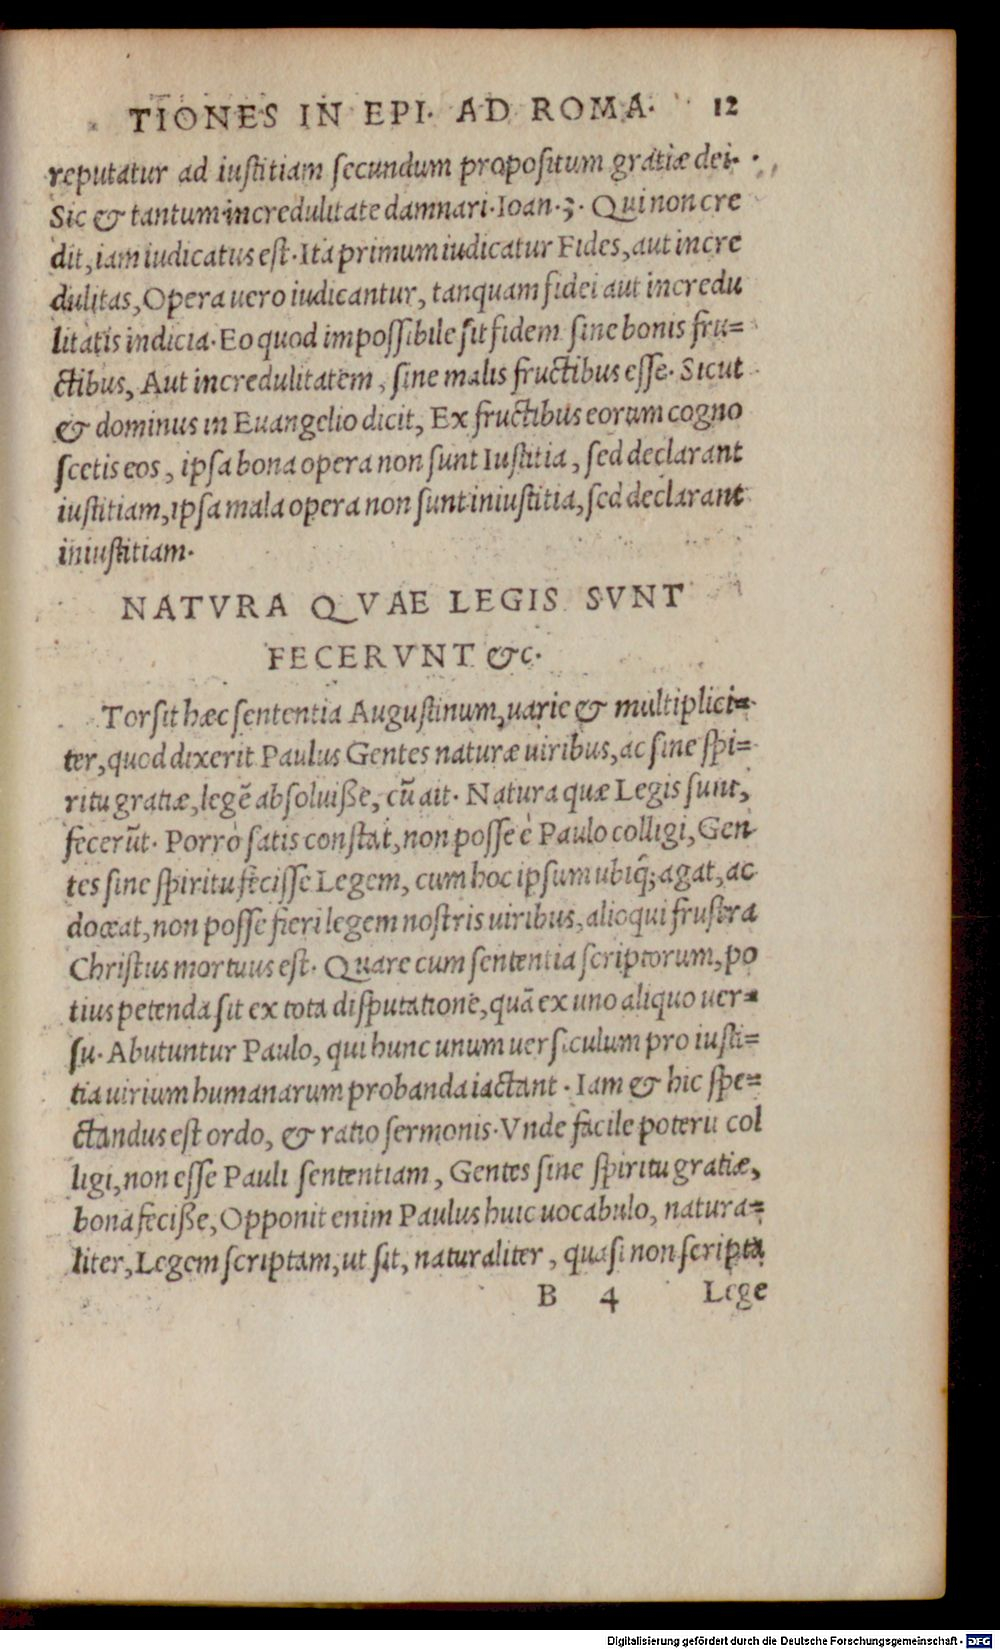 TIONES IN EPI. AD ROMA. 12
reputatur ad iustitiam secundum propositum gratiæ dei.
Sic & tantum incredulitate damnari. Ioan. 3. Qui non cre
dit, iam iudicatus est. Ita primum iudicatur Fides, aut incre
dulitas, Opera uero iudicantur, tanquam fidei aut incredu
litatis indicia. Eo quod impossibile sit fidem sine bonis fru=
ctibus, Aut incredulitatem, sine malis fructibus esse. Sicut
& dominus in Euangelio dicit, Ex fructibus eorum cogno
scetis eos, ipsa bona opera non sunt Iustitia, sed declarant
iustitiam, ipsa mala opera non sunt iniustitia, sed declarant
iniustitiam.
NATVRA QVAE LEGIS SVNT
FECERVNT &c.
Torsit hæc sententia Augustinum, uarie & multiplici=
ter, quod dixerit Paulus Gentes naturæ uiribus, ac sine spi=
ritu gratiæ, legẽ absoluiße, cũ ait. Natura quæ Legis sunt,
fecerũt. Porrò satis constat, non posse è Paulo colligi, Gen
tes sine spiritu fecisse Legem, cum hoc ipsum ubiq̃; agat, ac
doceat, non posse fieri legem nostris uiribus, alioqui frustra
Christus mortuus est. Quare cum sententia scriptorum, po
tius petenda sit ex tota disputatione, quã ex uno aliquo uer=
su. Abutuntur Paulo, qui hunc unum uersiculum pro iusti=
tia uirium humanarum probanda iactant. Iam & hic spe=
ctandus est ordo, & ratio sermonis. Vnde facile poterit col
ligi, non esse Pauli sententiam, Gentes sine spiritu gratiæ,
bona feciße, Opponit enim Paulus huic uocabulo, natura=
liter, Legem scriptam, ut sit, naturaliter, quasi non scripta
B 4 Lege
Digitalisierung gefördert durch die Deutsche Forschungsgemeinschaft - DFG